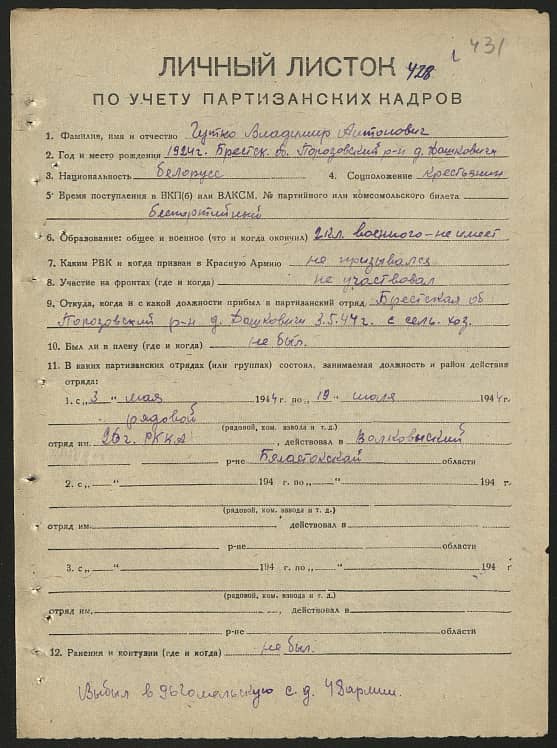 431
ЛИЧНЫЙ ЛИСТОК 428
ПО УЧЕТУ ПАРТИЗАНСКИХ КАДРОВ
1. Фамилия, имя и отчество Гутко Владимир Антонович
2. Год и место рождения 1924г. Брестск. об. Порозовский р-н д. Дашкевичи
3. Национальность белорусс 4. Соцположение крестьянин
5. Время поступления в ВКП(б) или ВЛКСМ, № партийного или комсомольского билета
беспартийный
6. Образование: общее и военное (что и когда окончил) 2 кл. военного - не имеет
7. Каким РВК и когда призван в Красную Армию не призывался
8. Участие на фронтах (где и когда) не участвовал
9. Откуда, когда и с какой должности прибыл в партизанский отряд Брестская об
Порозовский р-н д. Дашковичи 3.5.44г. с сель. хоз.
10. Был ли в плену (где и когда) не был.
11. В каких партизанских отрядах (или группах) состоял, занимаемая должность и район действия
отряда:
1. с „3“ мая 1944г по „19“ июля 1944г.
рядовой
(рядовой, ком. взвода и т. д.)
отряд им. 26 г. РККА, действовал в Волковыский
р-не Белостокской области
2. с „ “ 194 г. по „ “ 194 г.
(рядовой, ком. взвода и т. д.)
отряд им. , действовал в
р-не области
3. с „ “ 194 г. по „ “ 194 г
(рядовой, ком. взвода и т. д.)
отряд им. , действовал в
р-не области
12. Ранения и контузии (где и когда) не был.
Выбыл в 96 Гомельскую с. д. 48 армии.